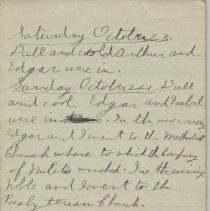 Saturday October 23.
Dull and cold Arthur and
Edgar were in.
Sunday October 24 Dull
and cool Edgar and Isabel
were in In the morning
Edgar and I went to the Methodist
Church where to which the Company
of Militia marched. In the evening
Noble and I went to the
Presbyterian Church.